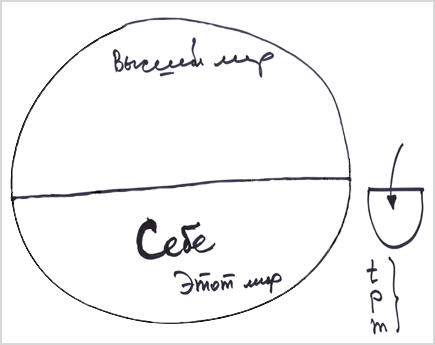 Высший мир
Себе
Этот мир
t
p
m